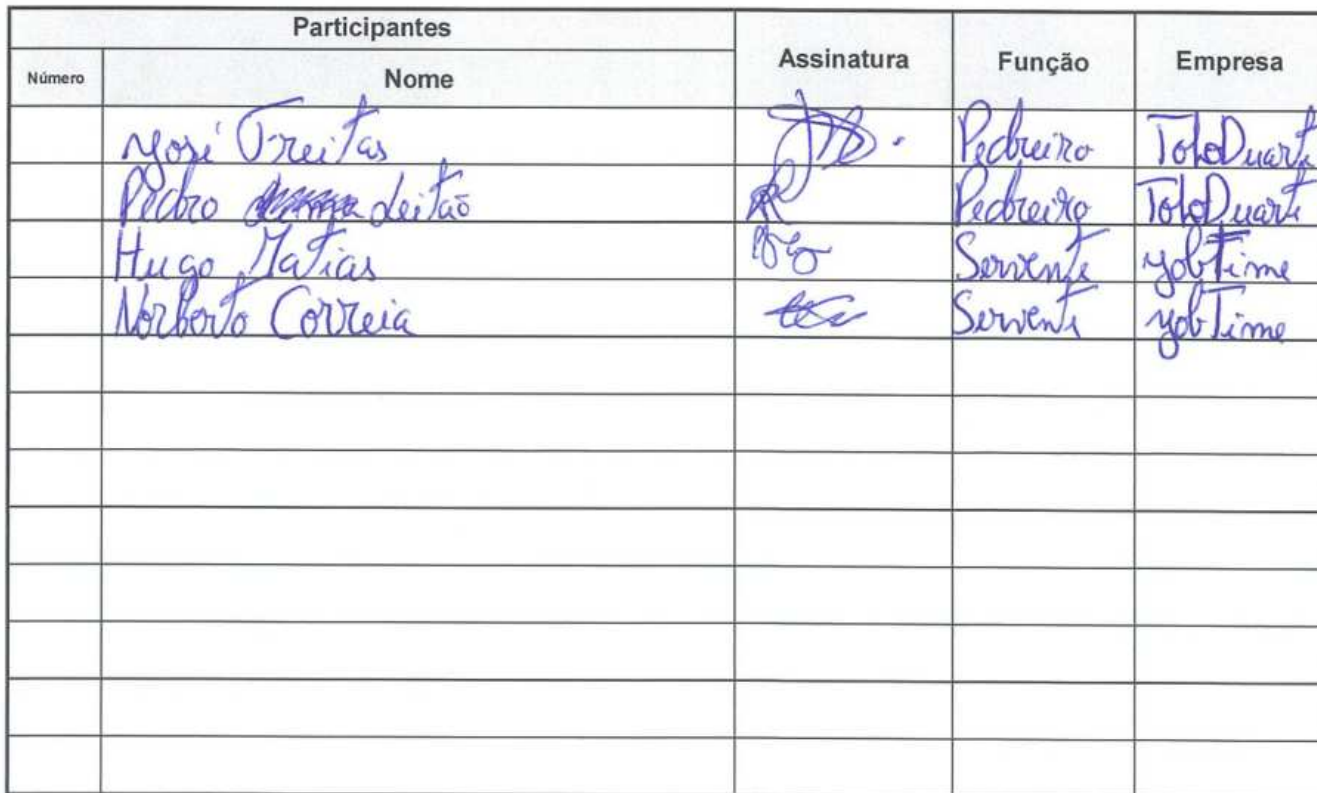 Participantes
Número Nome Assinatura Função Empresa
José Freitas Pedreiro ToloDuarte
Pedro Leitão Pedreiro ToloDuarte
Hugo Matias Servente JobTime
Norberto Correia Servente JobTime